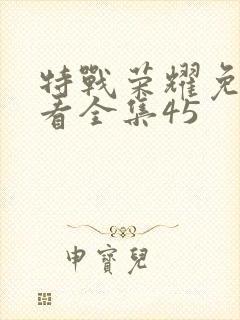 特戰荣耀免
看全集45
申寶兒